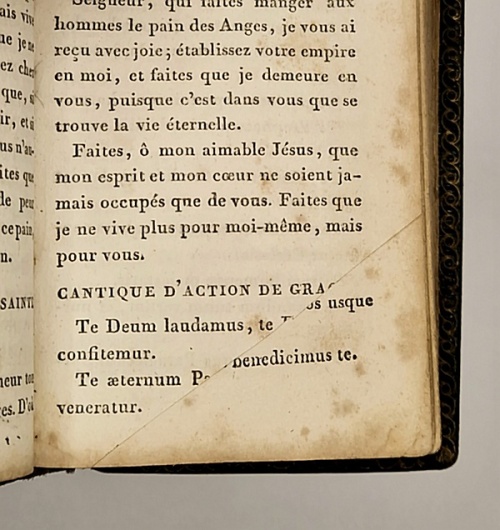 ais vive
ne je ne
ez cher
que, si
ir, et si
us n'au-
ites que
de peu
ce pain,
n.
SAINTE
neur tou
es. D'où
Seigneur, qui faites manger aux
hommes le pain des Anges, je vous ai
reçu avec joie; établissez votre empire
en moi, et faites que je demeure en
vous, puisque c'est dans vous que se
trouve la vie éternelle.
Faites, ô mon aimable Jésus, que
mon esprit et mon cœur ne soient ja-
mais occupés que de vous. Faites que
je ne vive plus pour moi-même, mais
pour vous.
CANTIQUE D'ACTION DE GRAC
usque
Te Deum laudamus, te
confitemur.
benedicimus te.
Te æternum P
veneratur.